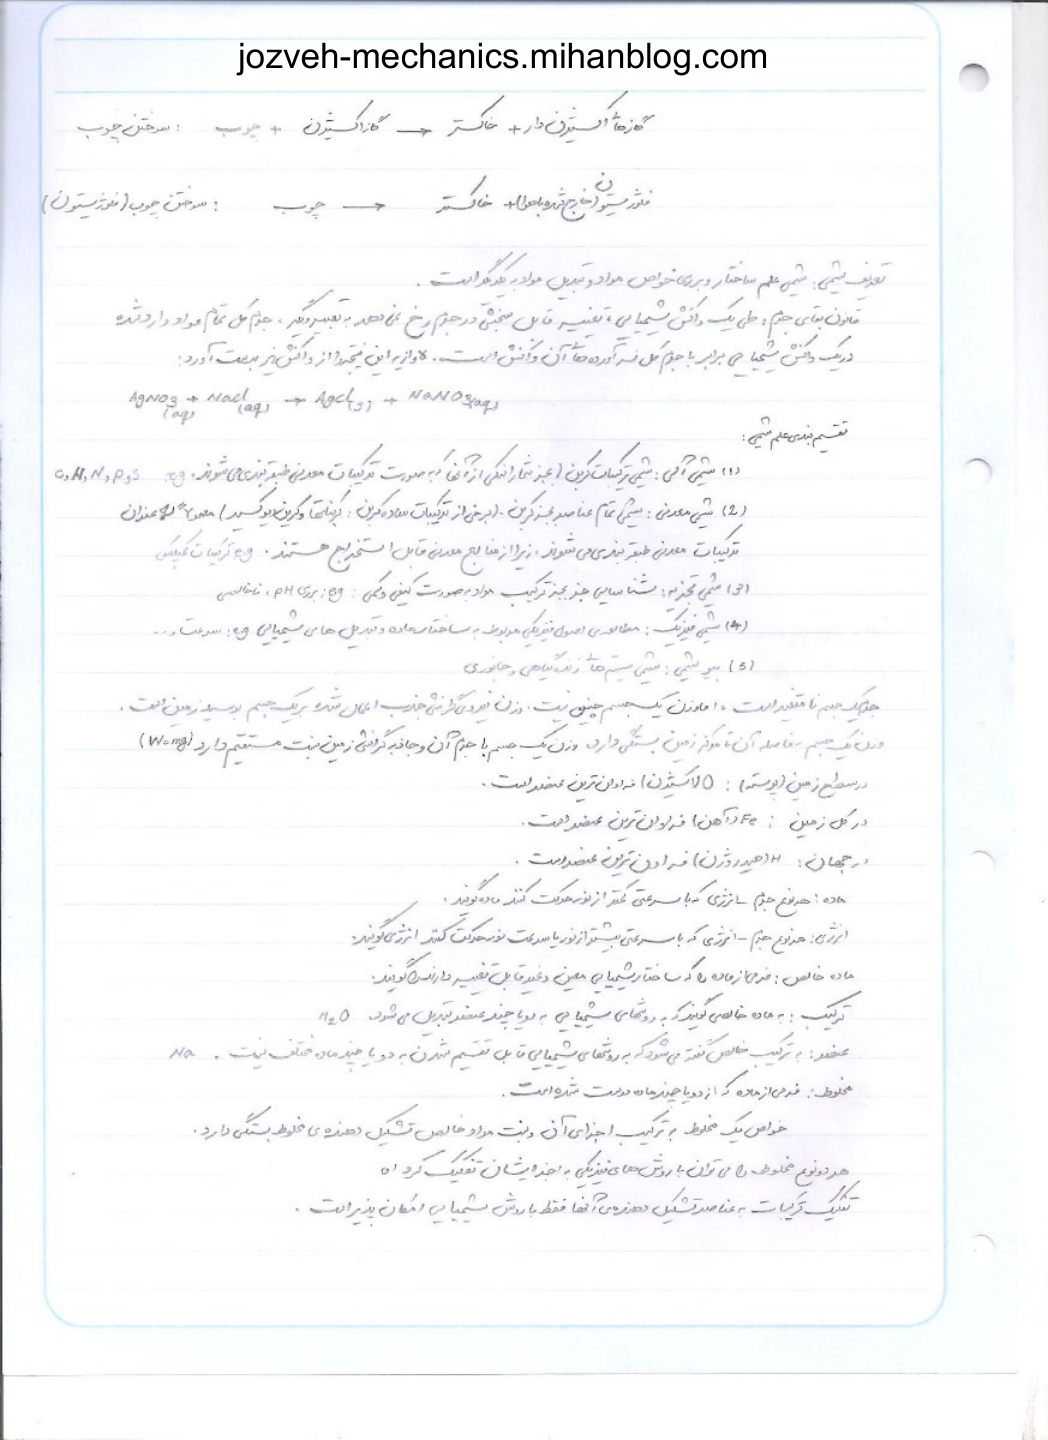 jozveh-mechanics.mihanblog.com
سوختن چوب : چوب + گاز اکسیژن → خاکستر + گازهای اکسیژن دار
سوختن چوب (فلوژیستون) : چوب → خاکستر + فلوژیستون (خارج شده با هوا)
تعریف شیمی : شیمی علم ساختار و بررسی خواص مواد و تبدیل مواد به یکدیگر است .
قانون بقای جرم : طی یک واکنش شیمیایی ، تغییر قابل سنجشی در جرم رخ نمی دهد به تعبیر دیگر ، جرم کل تمام مواد وارد شده
در یک واکنش شیمیایی برابر با جرم کل فرآورده های آن واکنش است . لاوازیه این نتیجه را از واکنش زیر بدست آورد :
AgNO3 (aq) + NaCl (aq) → AgCl (s) + NaNO3 (aq)
تقسیم بندی علم شیمی :
(1) شیمی آلی : شیمی ترکیبات کربن (بجز شمار اندکی از آنها که به صورت ترکیبات معدنی طبقه بندی می شوند . eg: C, H, N, P, S
(2) شیمی معدنی : شیمی تمام عناصر بجز کربن . (برخی از ترکیبات ساده کربن : کربناتها و کربن دیوکسید) معمولاً به عنوان
ترکیبات معدنی طبقه بندی می شوند ، زیرا از منابع معدنی قابل استخراج هستند . eg ترکیبات کمپلکس
(3) شیمی تجزیه : شناسایی جز بجز ترکیب مواد به صورت کیفی و کمی : eg: بررسی pH ، ناخالصی
(4) شیمی فیزیک : مطالعه ی اصول فیزیکی مربوط به ساختار ماده و تبدیل های شیمیایی eg: سرعت و ...
(5) بیو شیمی : شیمی سیستم های زنده گیاهی و جانوری
جرم یک جسم نامتغیر است ، اما وزن یک جسم چنین نیست . وزن نیروی گرانشی جذب اعمال شده بر یک جسم بوسیله زمین است .
وزن یک جسم به فاصله آن تا مرکز زمین بستگی دارد . وزن یک جسم با جرم آن و جاذبه گرانشی زمین نسبت مستقیم دارد (W=mg)
در سطح زمین (پوسته) : O (اکسیژن) فراوان ترین عنصر است .
در کل زمین : Fe (آهن) فراوان ترین عنصر است .
در جهان : H (هیدروژن) فراوان ترین عنصر است .
ماده : هر نوع جرم - انرژی که با سرعتی کمتر از نور حرکت کند ماده گویند .
انرژی : هر نوع جرم - انرژی که با سرعتی بیشتر از نور یا سرعت نور حرکت کند انرژی گویند .
ماده خالص : فرمی از ماده را که ساختار شیمیایی معین و غیر قابل تغییر دارند را گویند .
ترکیب : به ماده خالصی گویند که به روشهای شیمیایی به دو یا چند عنصر تبدیل می شود . H2O
عنصر : به ترکیب خالص گفته می شود که به روشهای شیمیایی قابل تقسیم شدن به دو یا چند ماده مختلف نیست . Na
مخلوط : فرمی از ماده که از دو یا چند ماده درست شده است .
خواص یک مخلوط به ترکیب اجزای آن و نسبت مواد خالص تشکیل دهنده ی مخلوط بستگی دارد .
هر دو نوع مخلوط را می توان با روش های فیزیکی به اجزایشان تفکیک کرد
تفکیک ترکیبات به عناصر تشکیل دهنده ی آنها فقط با روش شیمیایی امکان پذیر است .